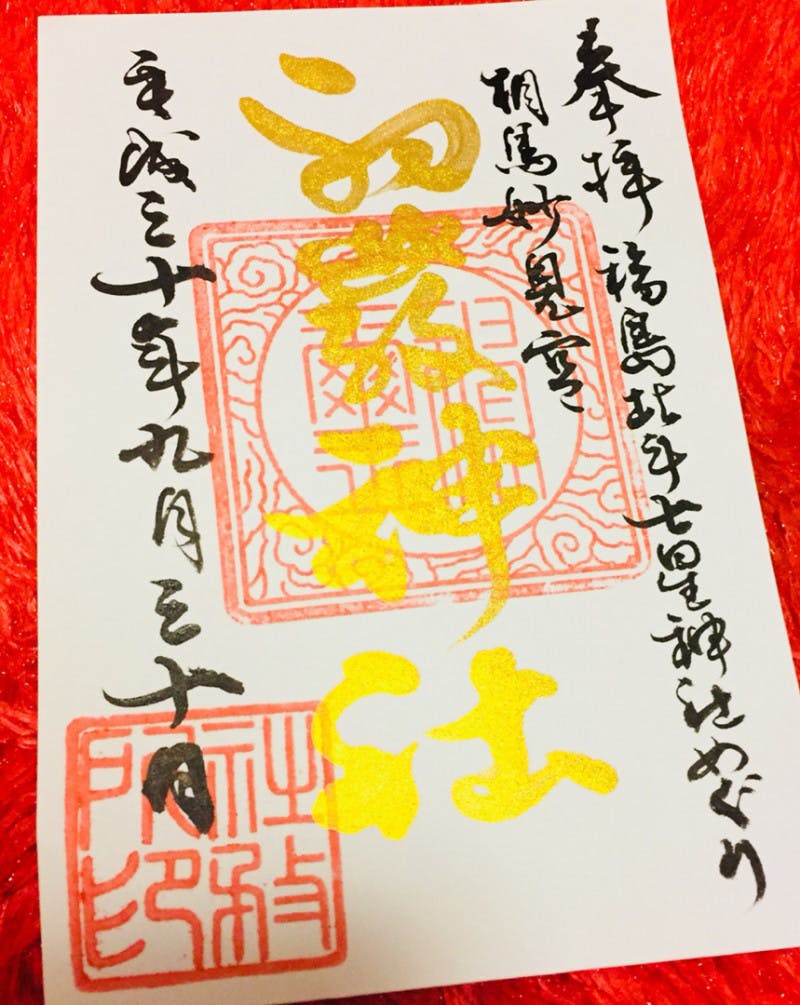 奉拝 福島北斗七星神社めぐり
相馬妙見宮
初發神社
平成三十年九月三十日
社務所印